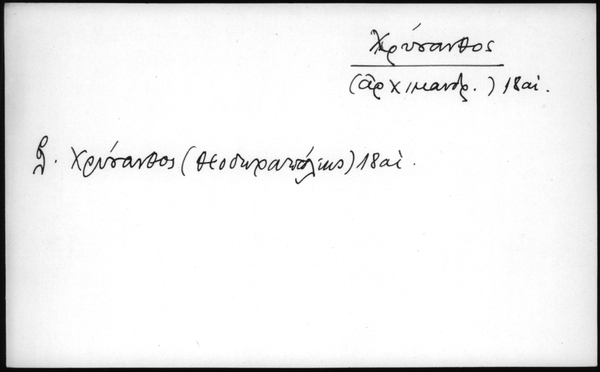 Χρύσανθος
(ἀρχιμανδρ.) 18 αἰ.
β. Χρύσανθος (Θεοδωρουπόλεως) 18 αἰ.